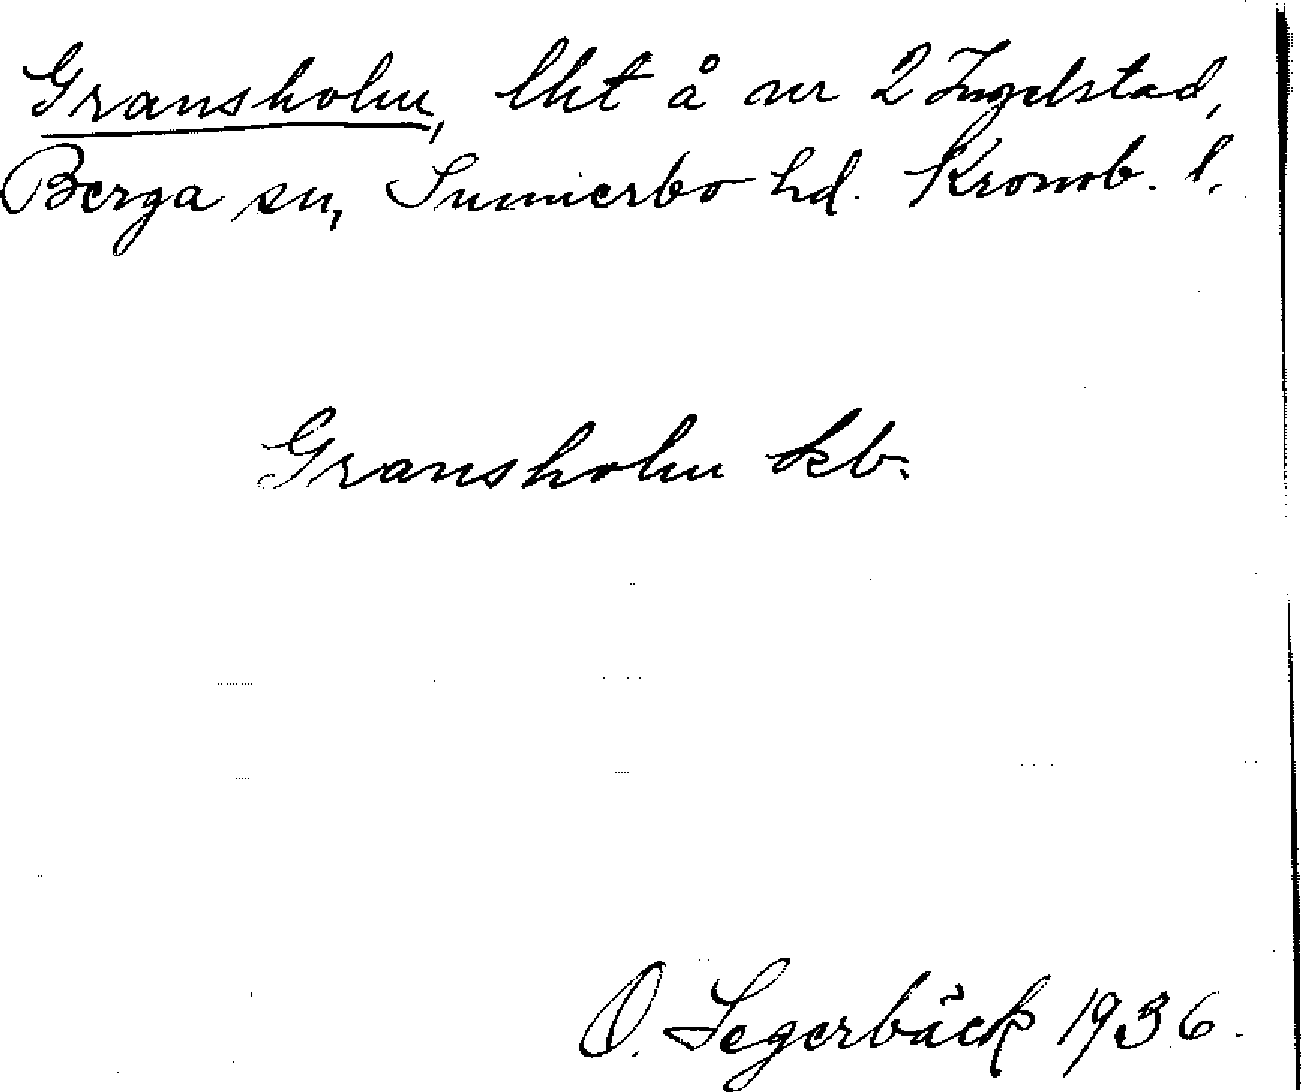 Gransholm, lht å nr 2 Ingelstad,
Berga sn, Sunnerbo hd. Kronob. l.
Gransholm kb.
O. Segerbäck 1936.